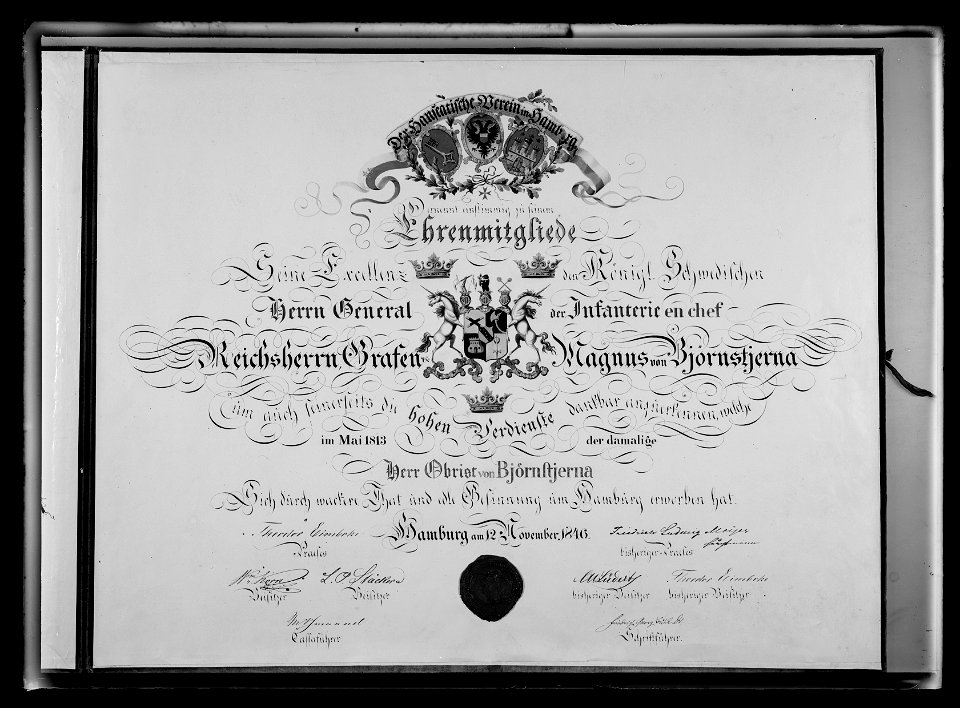 Der Hanseatische Verein in Hamburg
ernennt einstimmig zu seinem
Ehrenmitgliede
Seine Excellenz den Königl. Schwedischen
Herrn General der Infanterie en chef
Reichsherrn, Grafen Magnus von Björnstjerna
um auch seinerseits die hohen Verdienste dankbar anzuerkennen, welche
im Mai 1813 der damalige
Herr Obrist von Björnstjerna
Sich durch wackere That und edle Gesinnung um Hamburg erworben hat.
Hamburg am 12 November, 1846.
Theodor Friedrich Ludwig Meiger
Praeses bisheriger Praeses
Theodor
Beisitzer Beisitzer bisheriger Beisitzer bisheriger Beisitzer
Cassaführer Schriftführer.